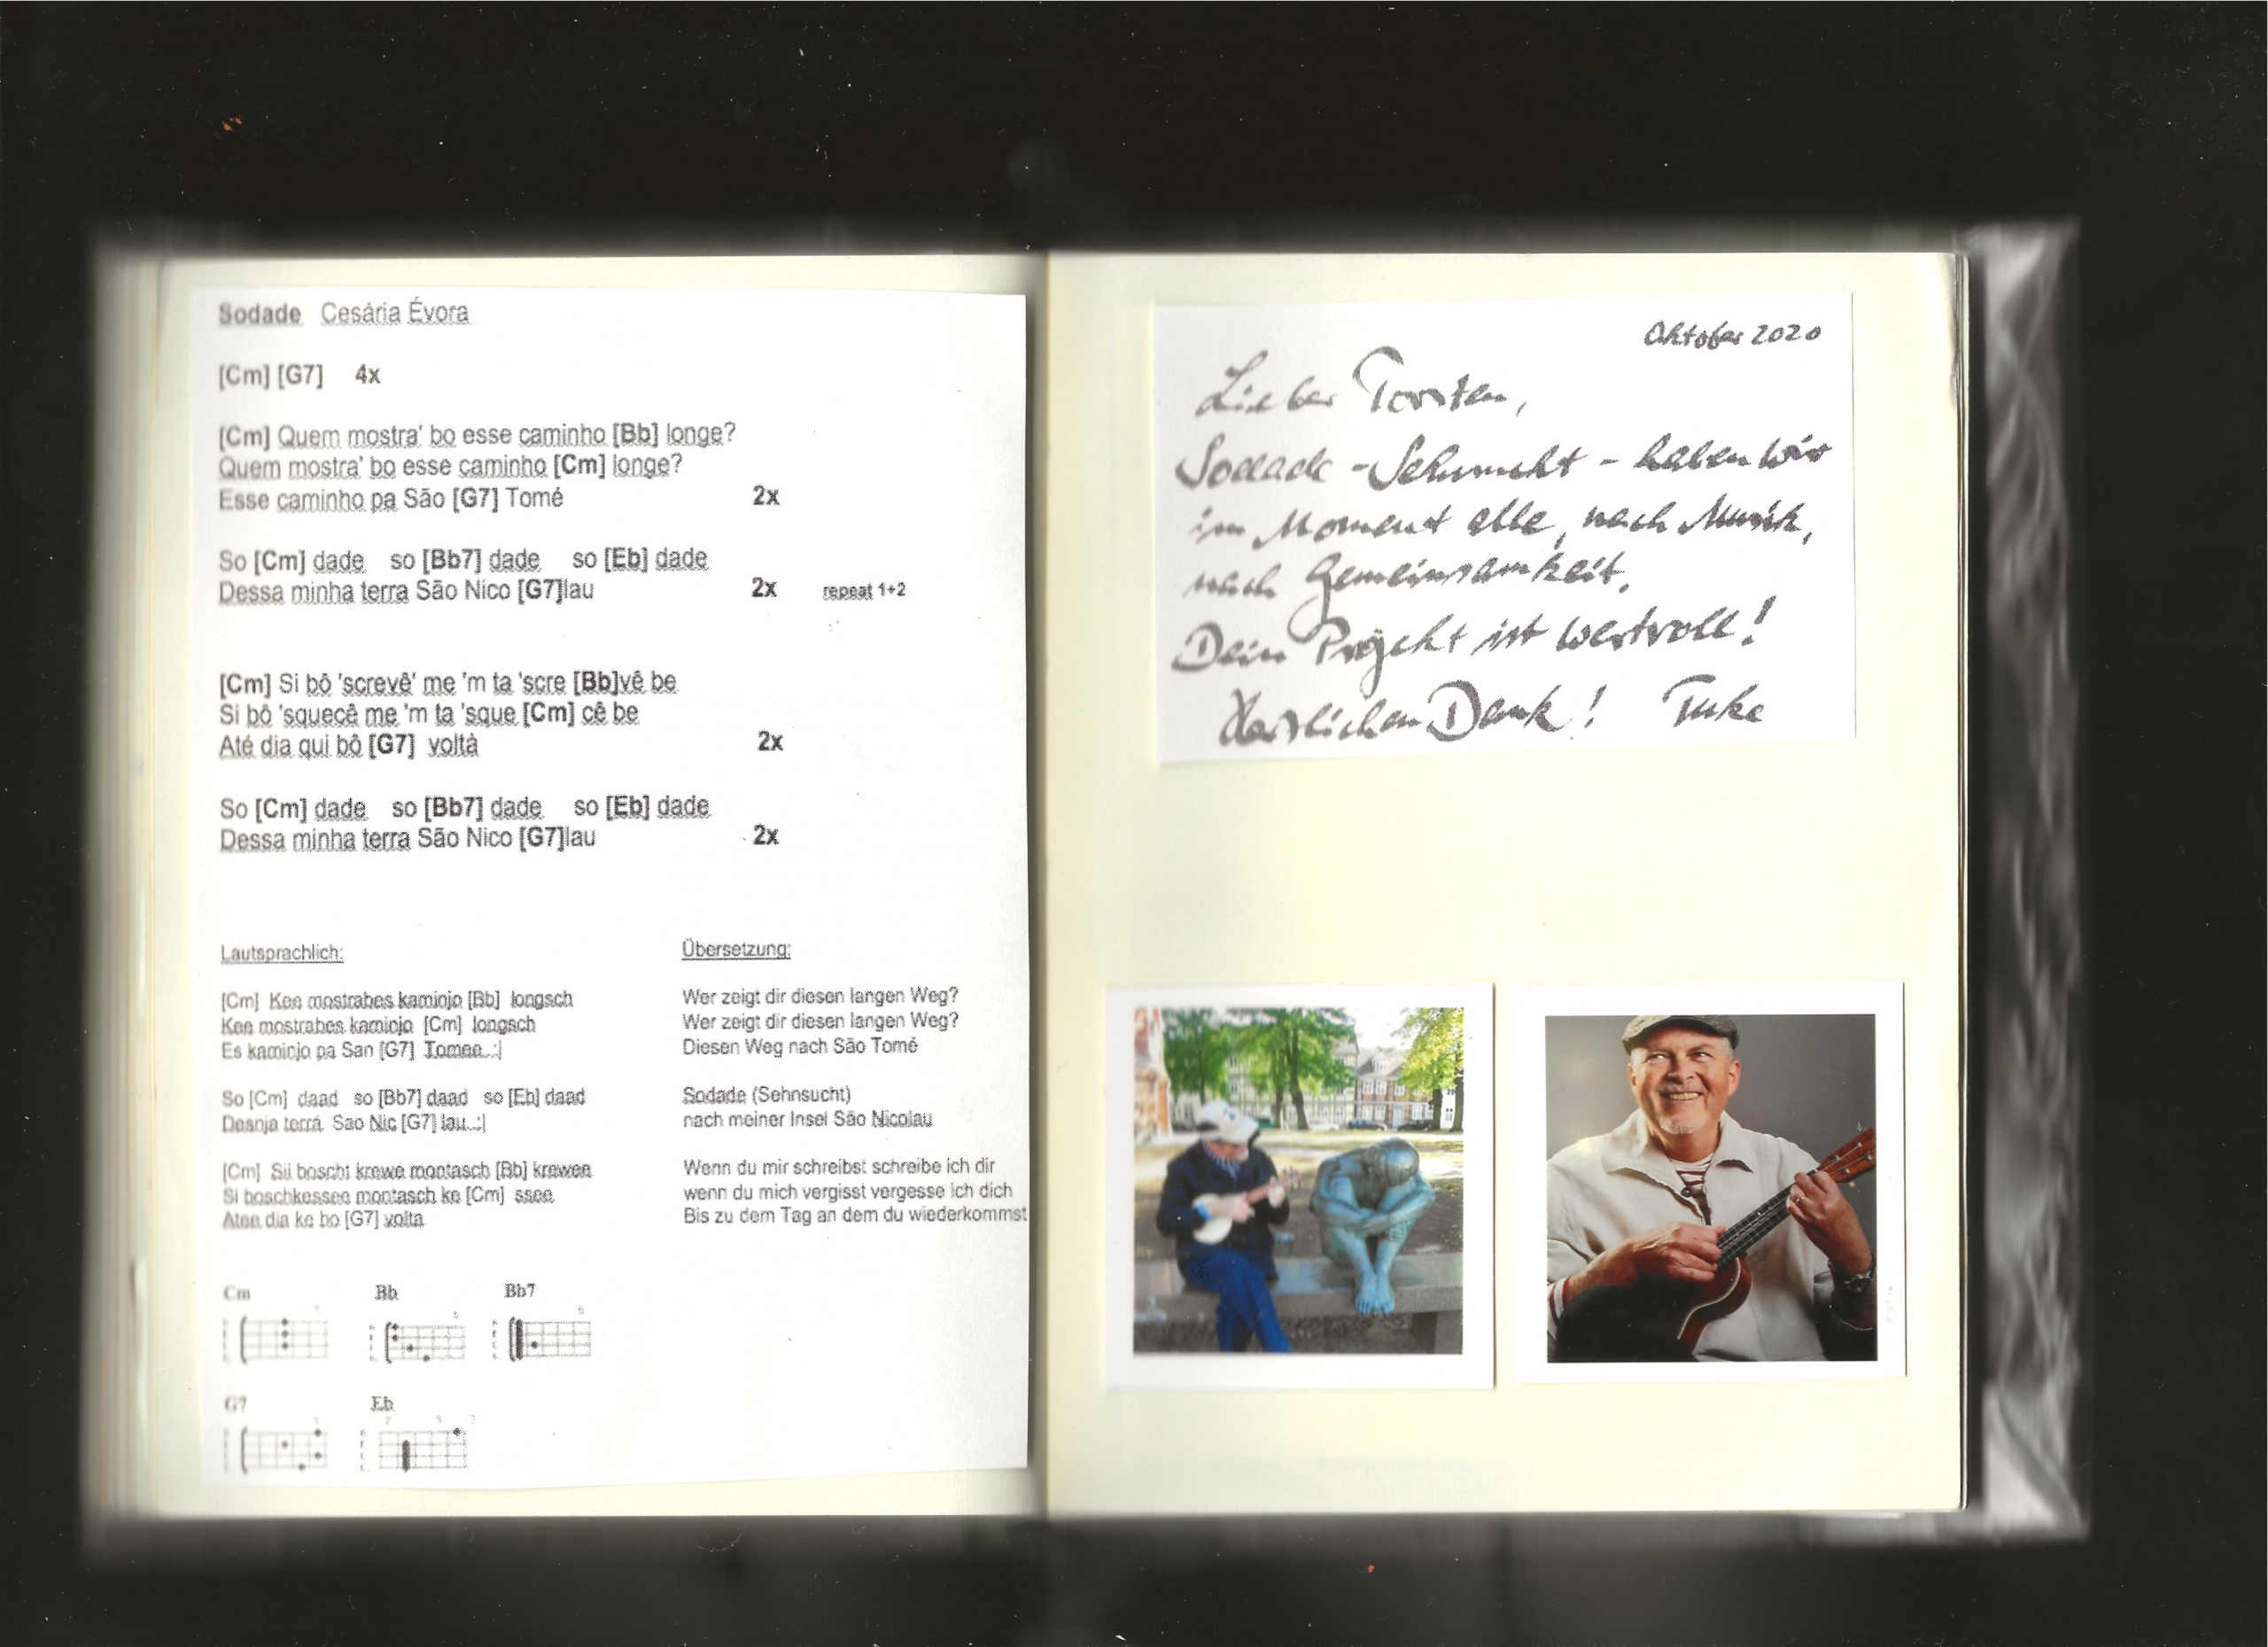 Sodade Cesária Évora
[Cm] [G7] 4x
[Cm] Quem mostra' bo esse caminho [Bb] longe?
Quem mostra' bo esse caminho [Cm] longe?
Esse caminho pa São [G7] Tomé 2x
So [Cm] dade so [Bb7] dade so [Eb] dade
Dessa minha terra São Nico [G7]lau 2x repeat 1+2
[Cm] Si bô 'screvê' me 'm ta 'scre [Bb]vê be
Si bô 'squecê me 'm ta 'sque [Cm] cê be
Até dia qui bô [G7] voltà 2x
So [Cm] dade so [Bb7] dade so [Eb] dade
Dessa minha terra São Nico [G7]lau 2x
Lautsprachlich:
[Cm] Kee mostrabes kaminjo [Bb] longsch
Kee mostrabes kaminjo [Cm] longsch
Es kaminjo pa San [G7] Tomee..:|
So [Cm] daad so [Bb7] daad so [Eb] daad
Desnja terrá Sao Nic [G7] lau..:|
[Cm] Sii boscht krewe montasch [Bb] krewee
Si boschkessee montasch ke [Cm] ssee
Atee dia ke bo [G7] volta
Übersetzung:
Wer zeigt dir diesen langen Weg?
Wer zeigt dir diesen langen Weg?
Diesen Weg nach São Tomé
Sodade (Sehnsucht)
nach meiner Insel São Nicolau
Wenn du mir schreibst schreibe ich dir
wenn du mich vergisst vergesse ich dich
Bis zu dem Tag an dem du wiederkommst
Cm Bb Bb7
G7 Eb
Oktober 2020
Lieber Torsten,
Sodade - Sehnsucht - haben wir
im Moment alle, nach Musik,
nach Gemeinsamkeit.
Dein Projekt ist wertvoll!
Herzlichen Dank! Tuke